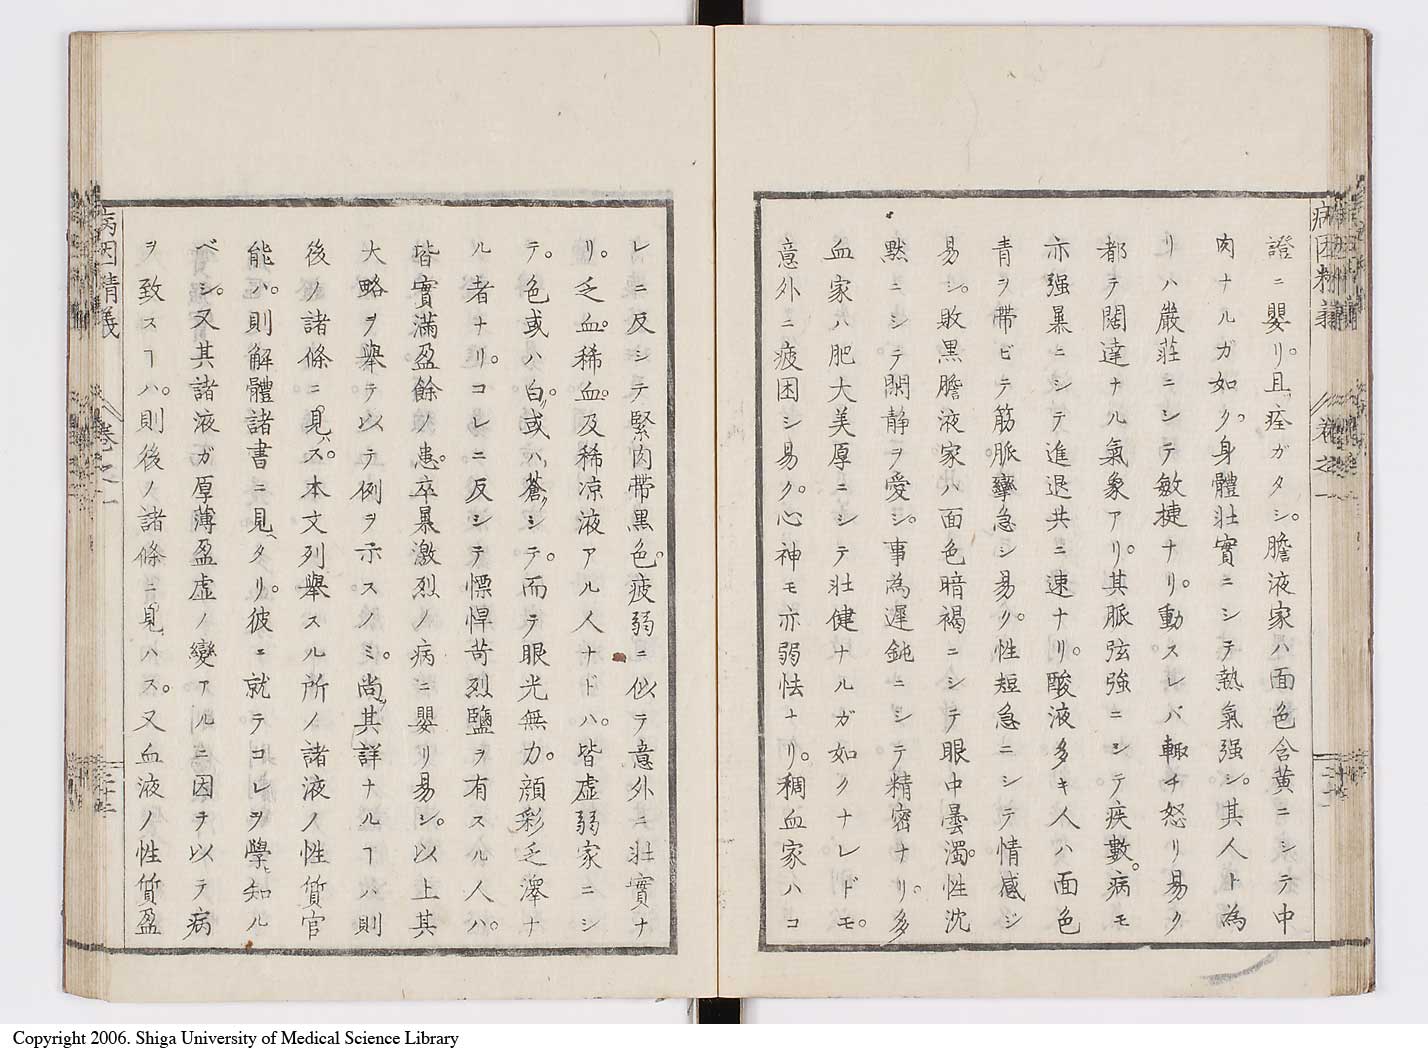 病因精義
卷之一
證ニ嬰リ。且痊ガタシ。膽液家ハ面色含黄ニシテ中
肉ナルガ如ク。身體壯實ニシテ熱氣强シ。其人ト為
リハ嚴莊ニシテ敏捷ナリ。動スレバ輙チ怒リ易ク
都テ闊達ナル氣象アリ。其脈弦強ニシテ疾數。病モ
亦强暴ニシテ進退共ニ速ナリ。酸液多キ人ハ面色
青ヲ帶ビテ筋脈攣急シ易ク。性短急ニシテ情感シ
易シ。敗黑膽液家ハ面色暗褐ニシテ眼中曇濁。性沈
黙ニシテ閑静ヲ愛シ。事為遲鈍ニシテ精密ナリ。多
血家ハ肥大美厚ニシテ壯健ナルガ如クナレドモ。
意外ニ疲困シ易ク。心神モ亦弱怯ナリ。稠血家ハコ
レニ反シテ緊肉帶黑色。疲弱ニ似テ意外ニ壯實ナ
リ。乏血。稀血。及稀凉液アル人ナドハ。皆虚弱家ニシ
テ。色或ハ白ク。或ハ蒼シ。而テ眼光無力。顔彩乏澤ナ
ル者ナリ。コレニ反シテ慓悍苛烈鹽ヲ有スル人ハ。
皆實滿盈餘ノ患。卒暴激烈ノ病ニ嬰リ易シ。以上其
大略ヲ舉テ以テ例ヲ示スノミ。尚其詳ナルヿハ則
後ノ諸條ニ見ス。本文列舉スル所ノ諸液ノ性質官
能ハ。則解體諸書ニ見タリ。彼ニ就テコレヲ學知ル
ベシ。又其諸液ガ厚薄盈虚ノ變アルニ因チ以テ病
ヲ致スヿハ。則後ノ諸條ニ見ハス。又血液ノ性質盈
病因精義
卷之一
二十二
Copyright 2006. Shiga University of Medical Science Library